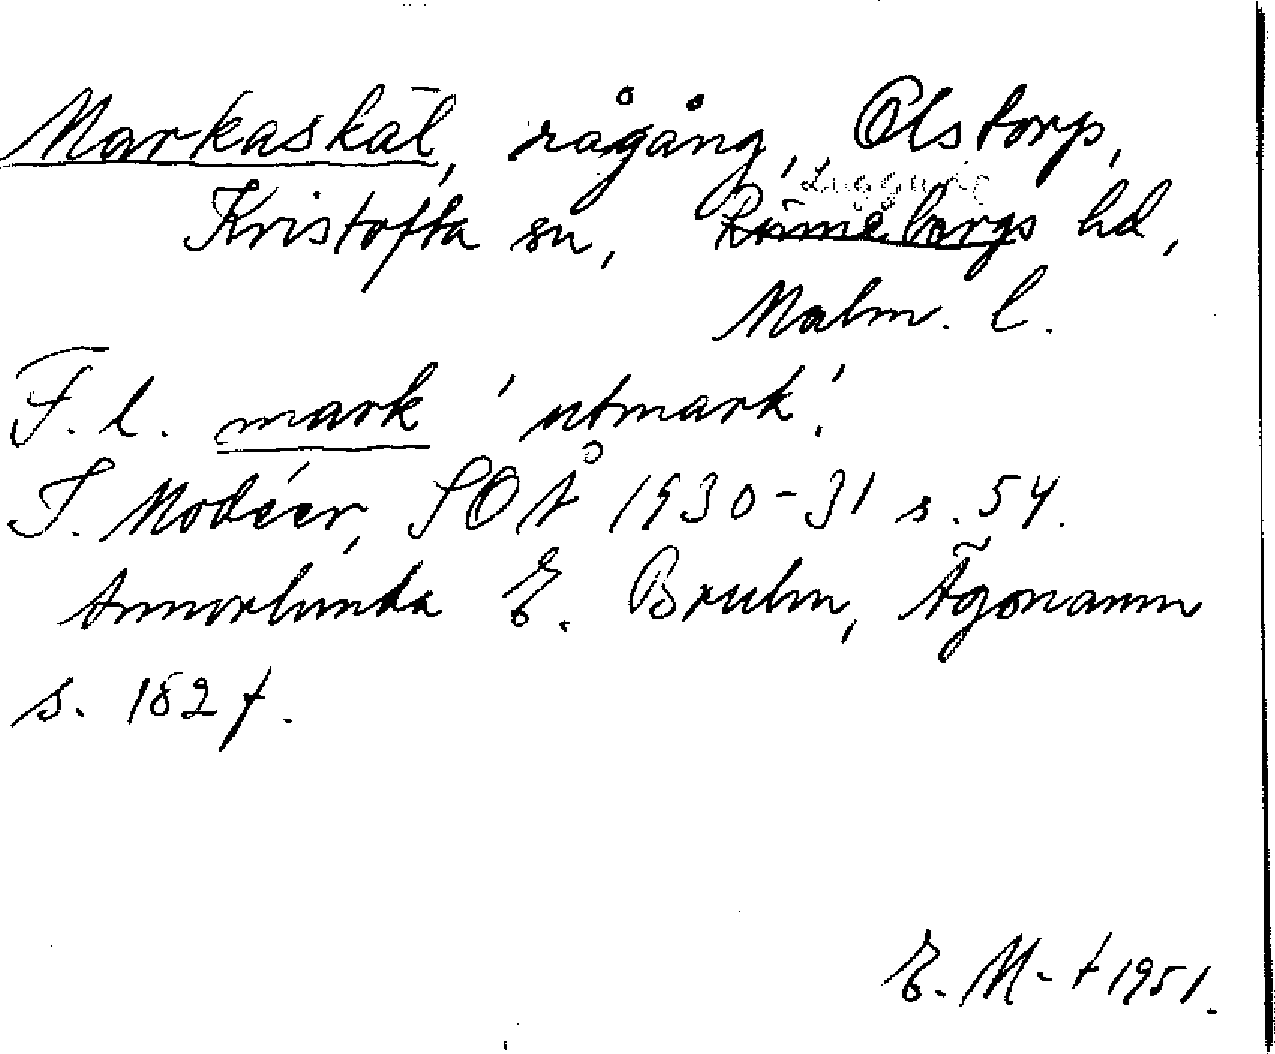 Markaskäl, rågång, Olstorp,
Luggude
Kristofta sn, Rönnebergs hd,
Malm. l.
F. l. mark 'utmark'.
I. Modéer, SOÅ 1930-31 s. 54.
Annorlunda E. Bruhn, Ägonamn
s. 182 f.
E. M-t 1951.